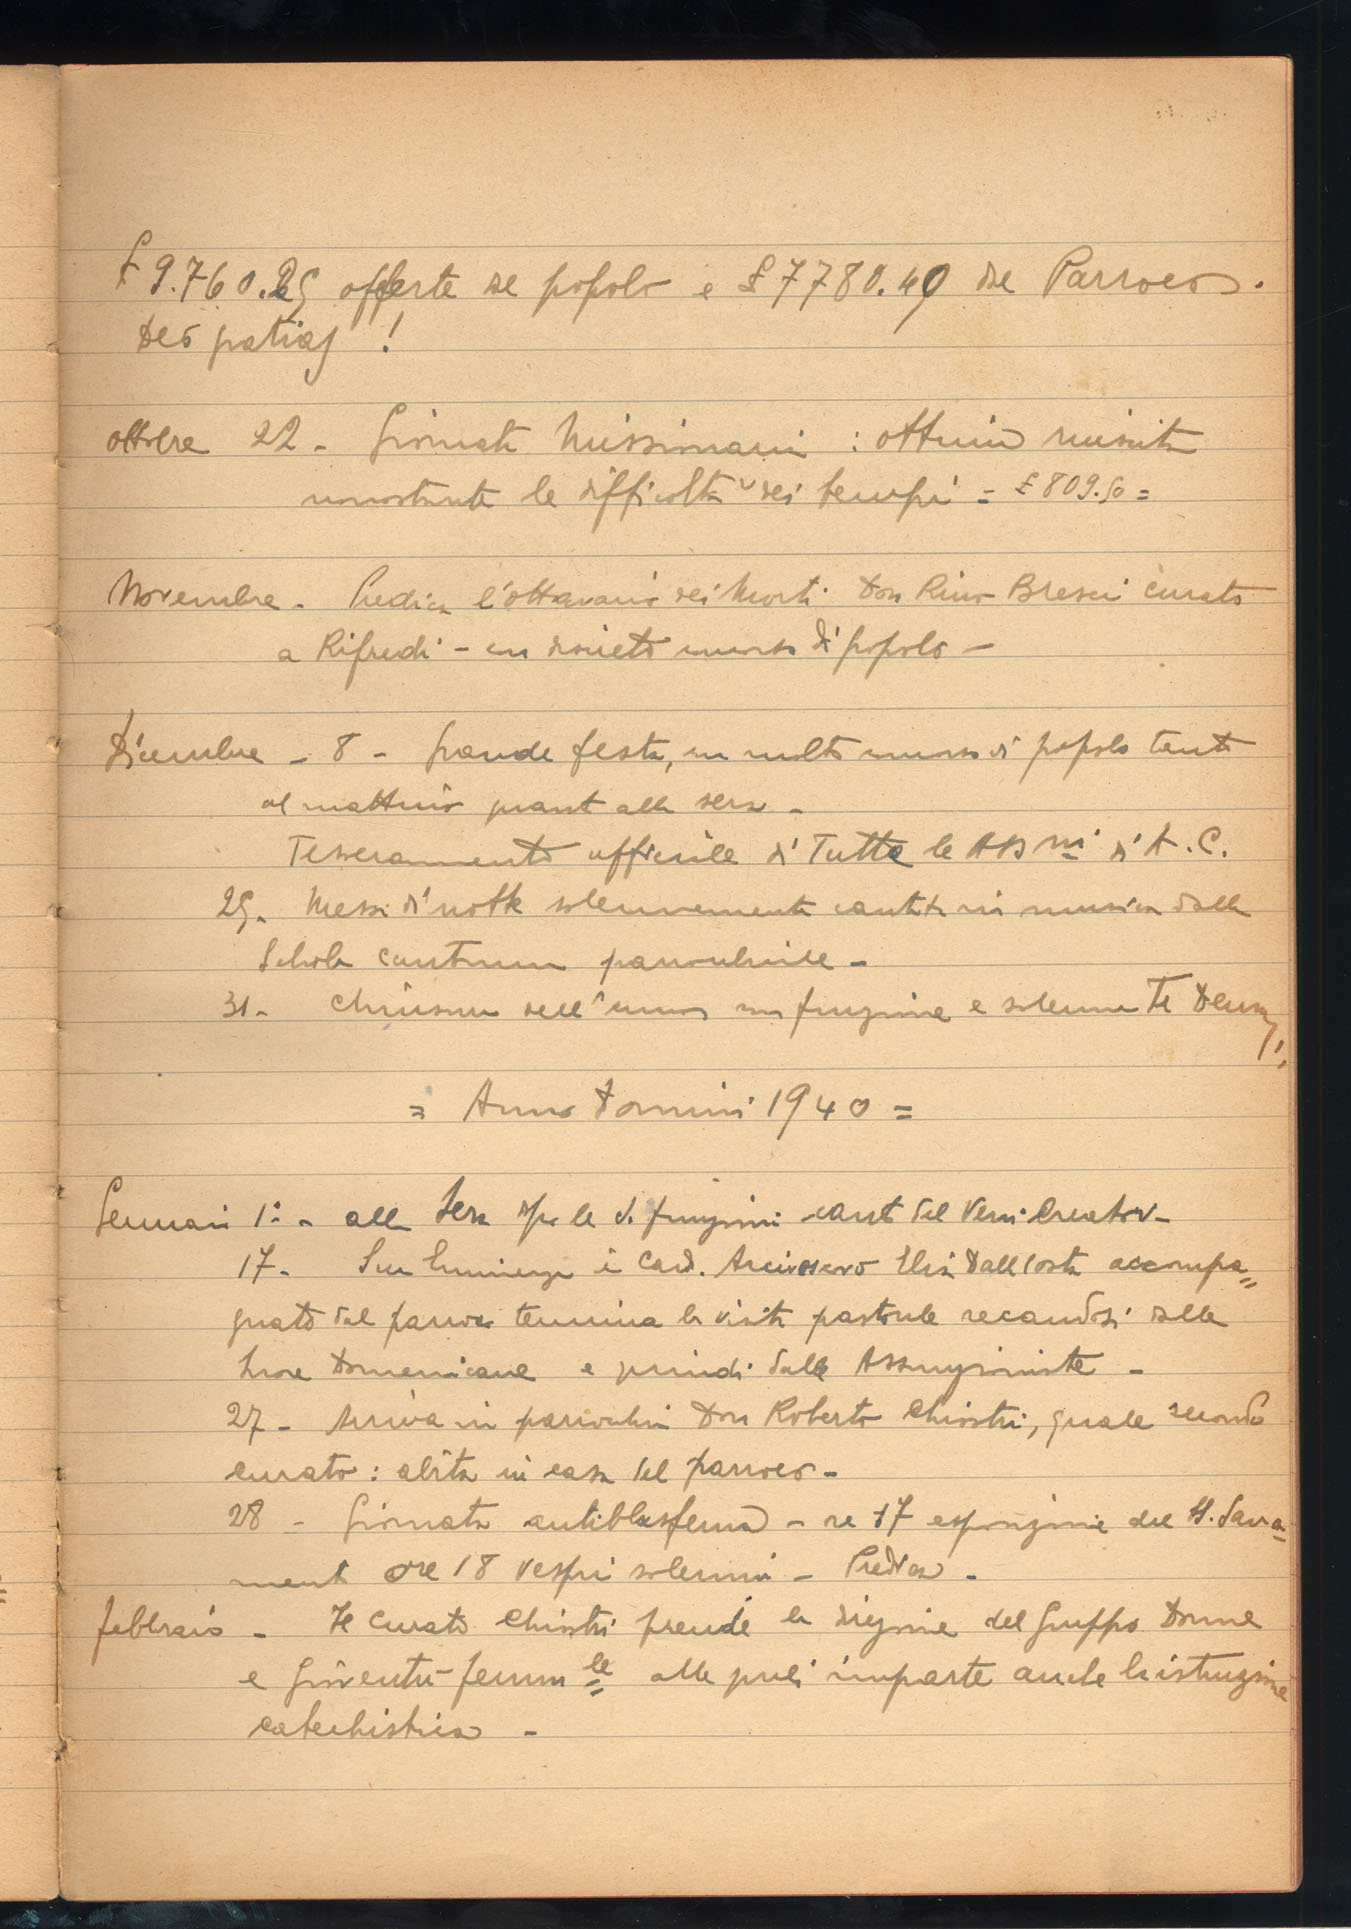 £ 9.760.25 offerte del popolo e £ 7780.40 del Parroco.
Deo gratias !
Ottobre 22 - Giornata Missionaria : ottima riuscita
nonostante le difficoltà dei tempi = £ 809.50 =
Novembre - Predica l'ottavario dei Morti Don Rino Bresci curato
a Rifredi - con discreto concorso di popolo -
Dicembre - 8 - Grande festa, con molto concorso di popolo tanto
al mattino quanto alla sera -
Tesseramento ufficiale di Tutte le Assni di A.C.
25. Messa di notte solennemente cantata in musica dalla
Schola cantorum parrocchiale -
31 - Chiusura dell'anno con funzione e solenne Te Deum,
= Anno Domini 1940 =
Gennaio 1° - alla sera dopo le S. funzioni canto del Veni Creator -
17 - Sua Eminenza il Card. Arcivescovo Elia Dalla Costa accompa=
gnato dal parroco termina la visita pastorale recandosi dalle
Suore Domenicane e quindi dalle Assunzioniste -
27 - Arriva in parrocchia Don Roberto Chiostri, quale secondo
curato : abita in casa del parroco -
28 - Giornata antiblasfema - ore 17 esposizione del SS. Sacra=
mento ore 18 vespri solenni - Predica -
febbraio - Il curato Chiostri prende la direzione del Gruppo Donne
e Gioventù femmle alle quali imparte anche la istruzione
catechistica -